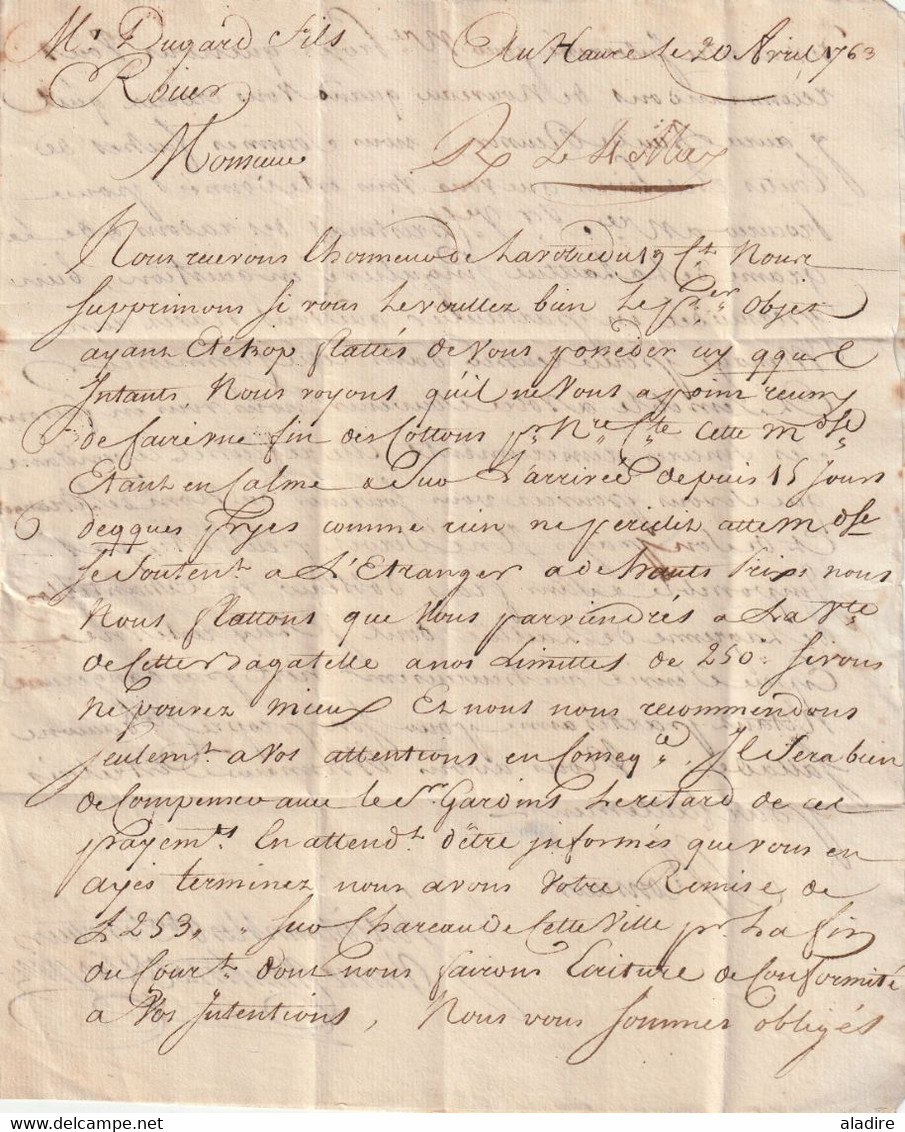 Mr Dugard Fils Au Havre le 20 Avril 1763
Rouen
Monsieur R Le 4 May
Nous recevons l'honneur de la votre du 19 Ct. Nous
supprimons si vous le voullez bien le Per objet
ayant Eté trop flattés de vous posseder icy qques
Instants. Nous voyons qu'il ne vous a point reussy
de faire une fin des Cottons pr Nre Cte cette mdse
Etant en Calme a Suo L'arrivée depuis 15 Jours
de qques pryes comme rien ne periclit cette mdse
se soutent a L'Etranger a de hauts Prix nous
Nous flattons que vous parviendrés a La Vte
de Cette Bagatelle a nos Limittes de 250. si vous
ne pouvez mieux Et nous nous recommendons
seulemt. a vos attentions en Conseqce, Il sera bien
de Compenser avec le Sr. Gardins le retard de ces
payemts En attendt. d'être informés que vous en
ayés terminez nous avons votre Remise de
£ 253 " " suo Chareau de Cette Ville pr. La fin
du Court. dont nous fairons Ecriture de Conformité
a Vos Intentions, Nous vous sommes obligés
aladire